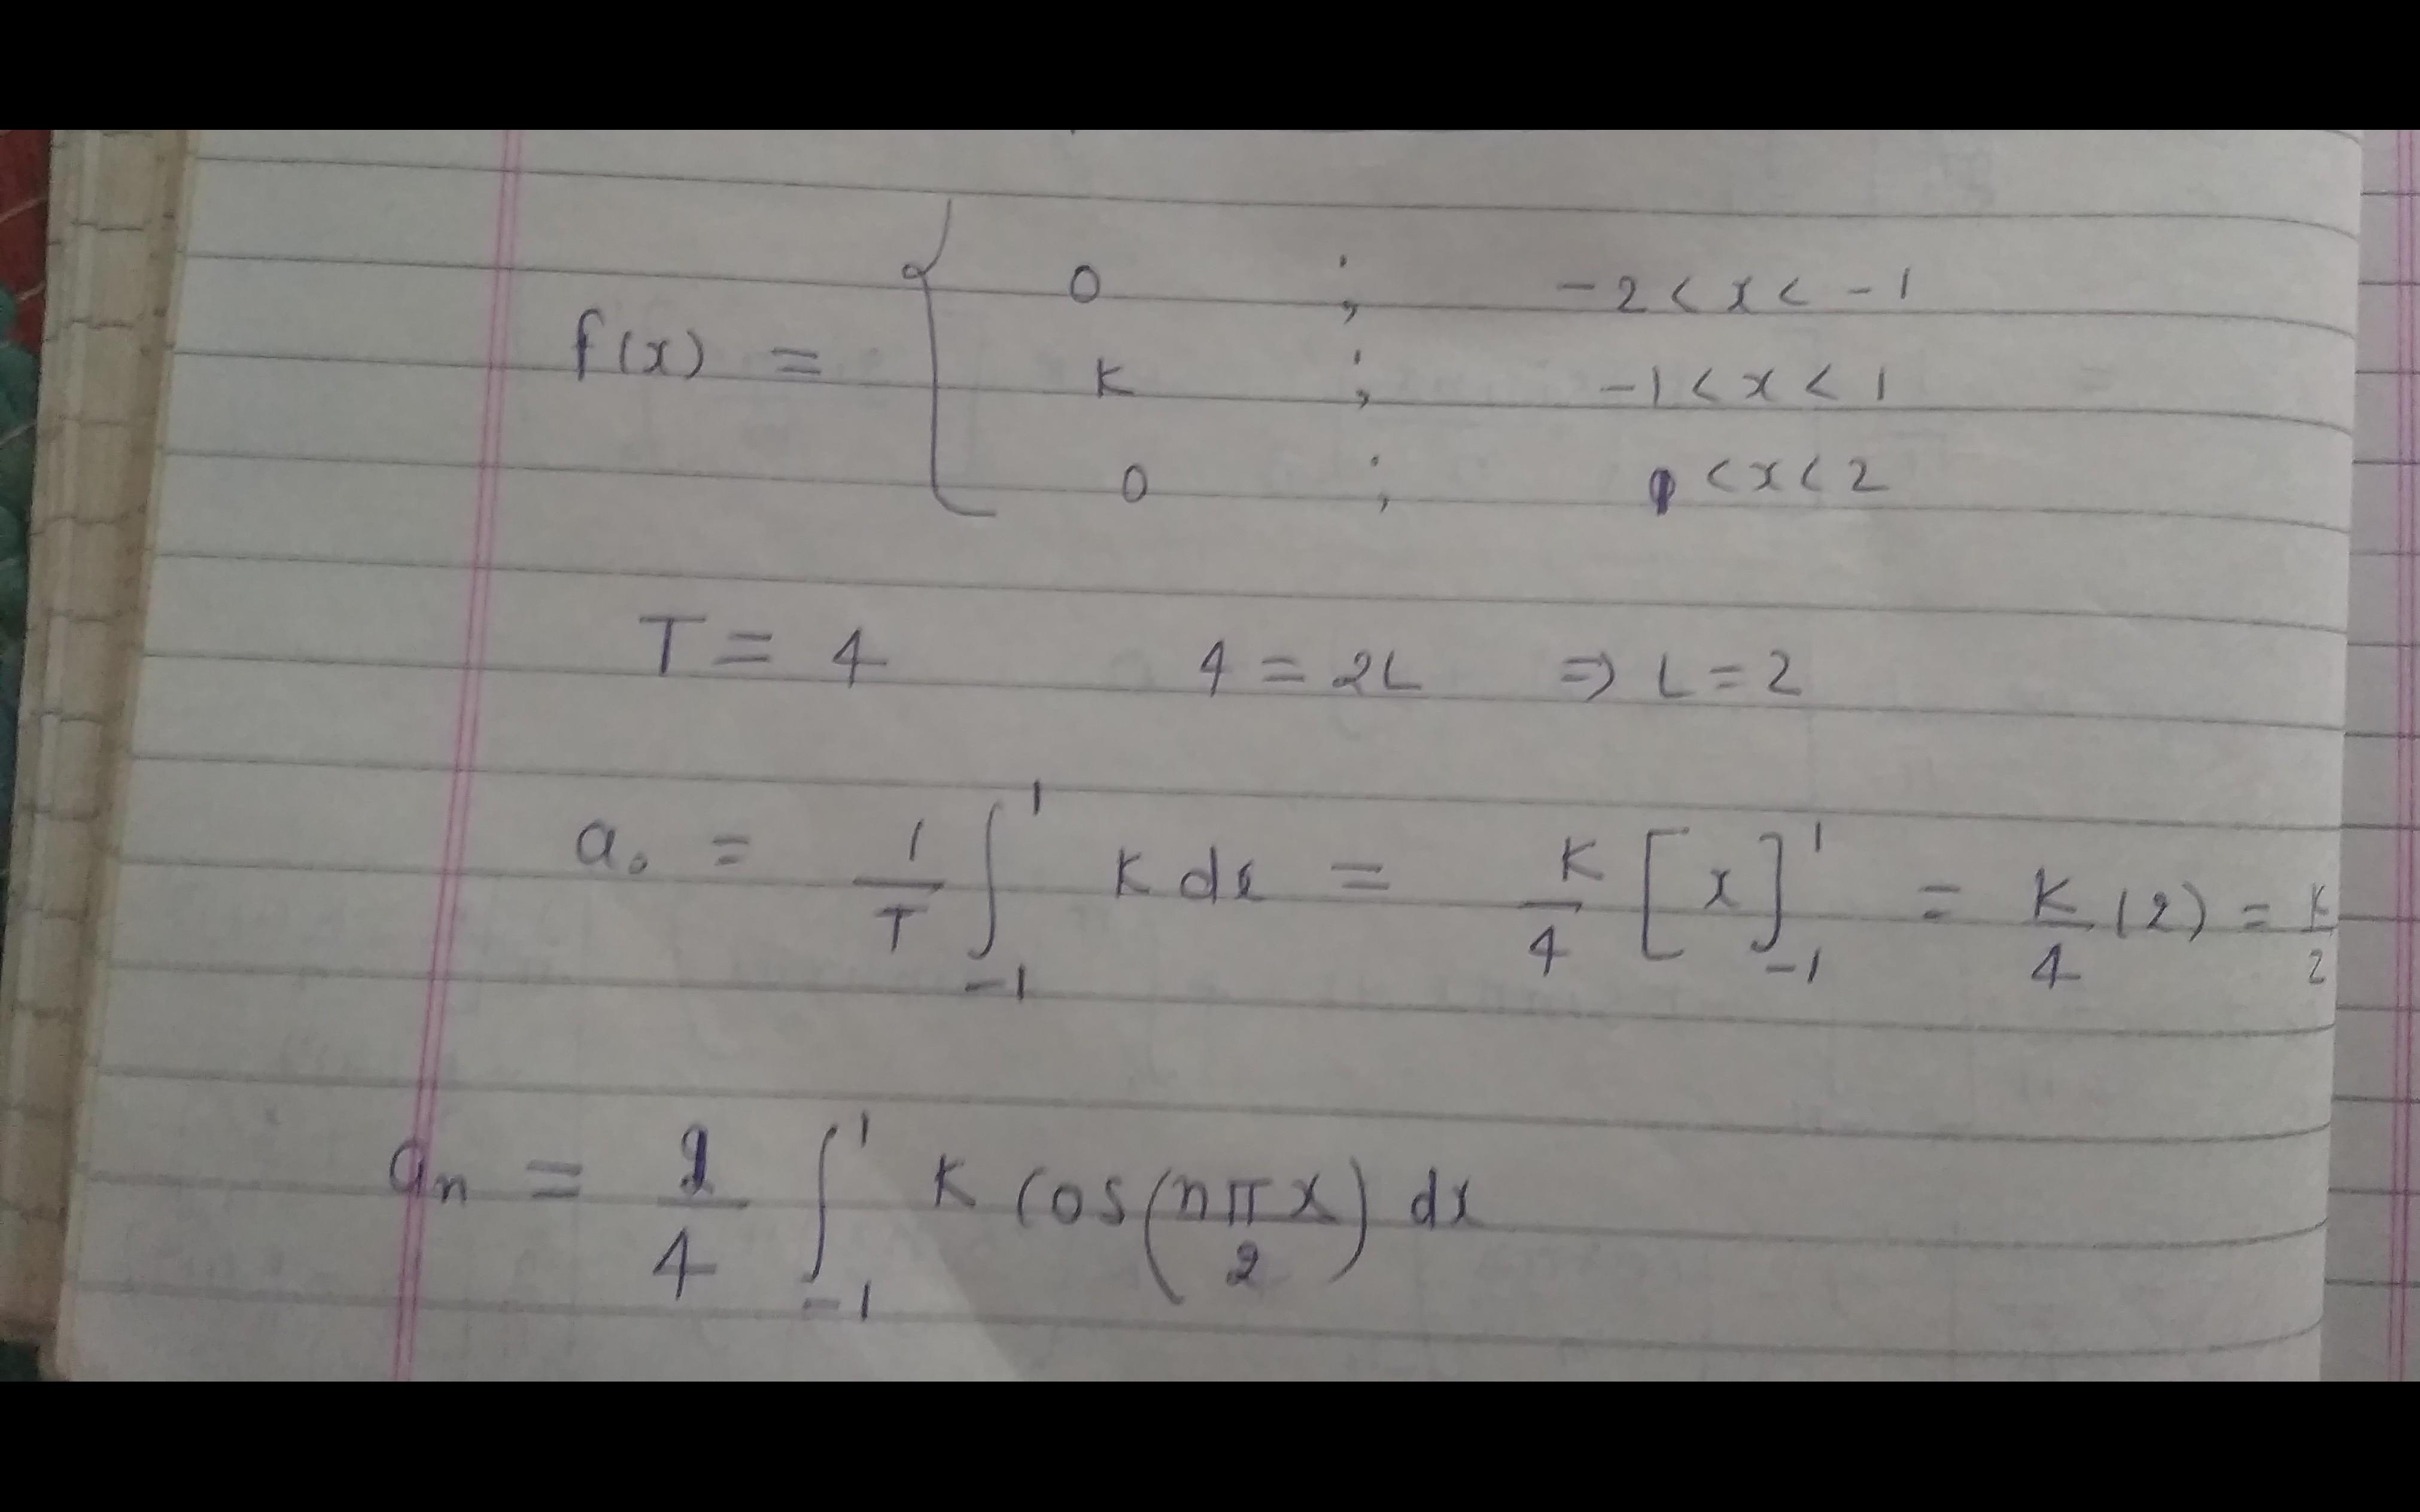 0 ; -2 < x < -1
f(x) = { K ; -1 < x < 1
0 ; 1 < x < 2
T = 4 4 = 2L ⇒ L = 2
a₀ = 1/T ∫₋₁¹ K dx = K/4 [x]₋₁¹ = K/4 (2) = K/2
aₙ = 2/4 ∫₋₁¹ K cos(nπx/2) dx